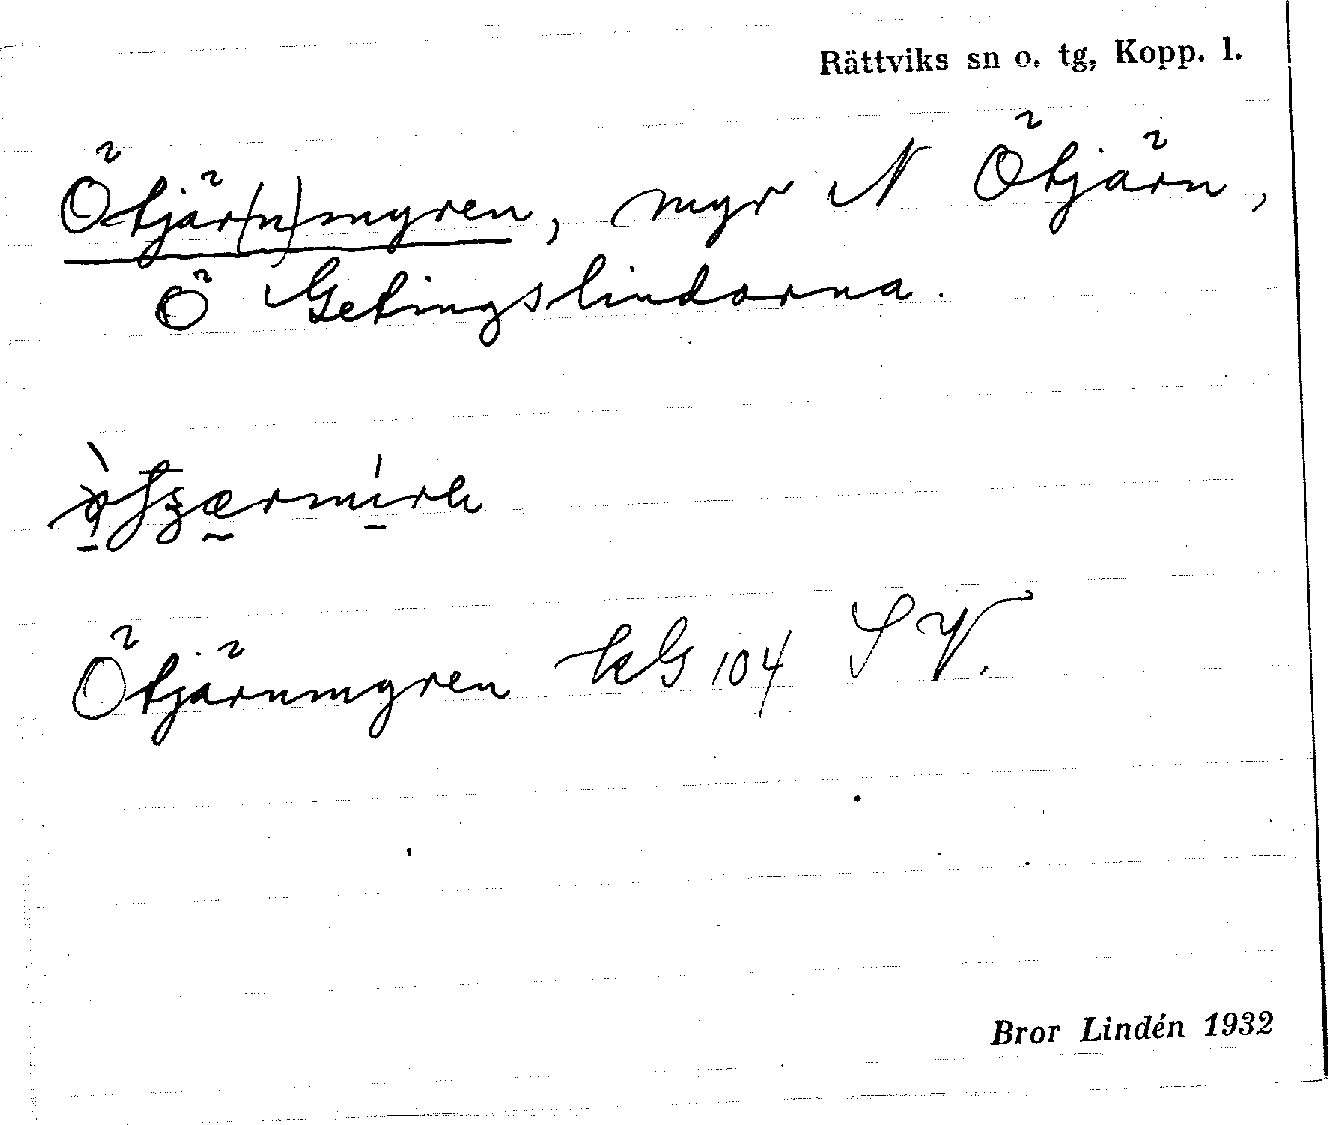 Rättviks sn o. tg, Kopp. l.
Ötjär(n)myren, myr N Ötjärn,
Ö Getingslindorna.
Ötjärnmyren kG 104 SV.
Bror Lindén 1932